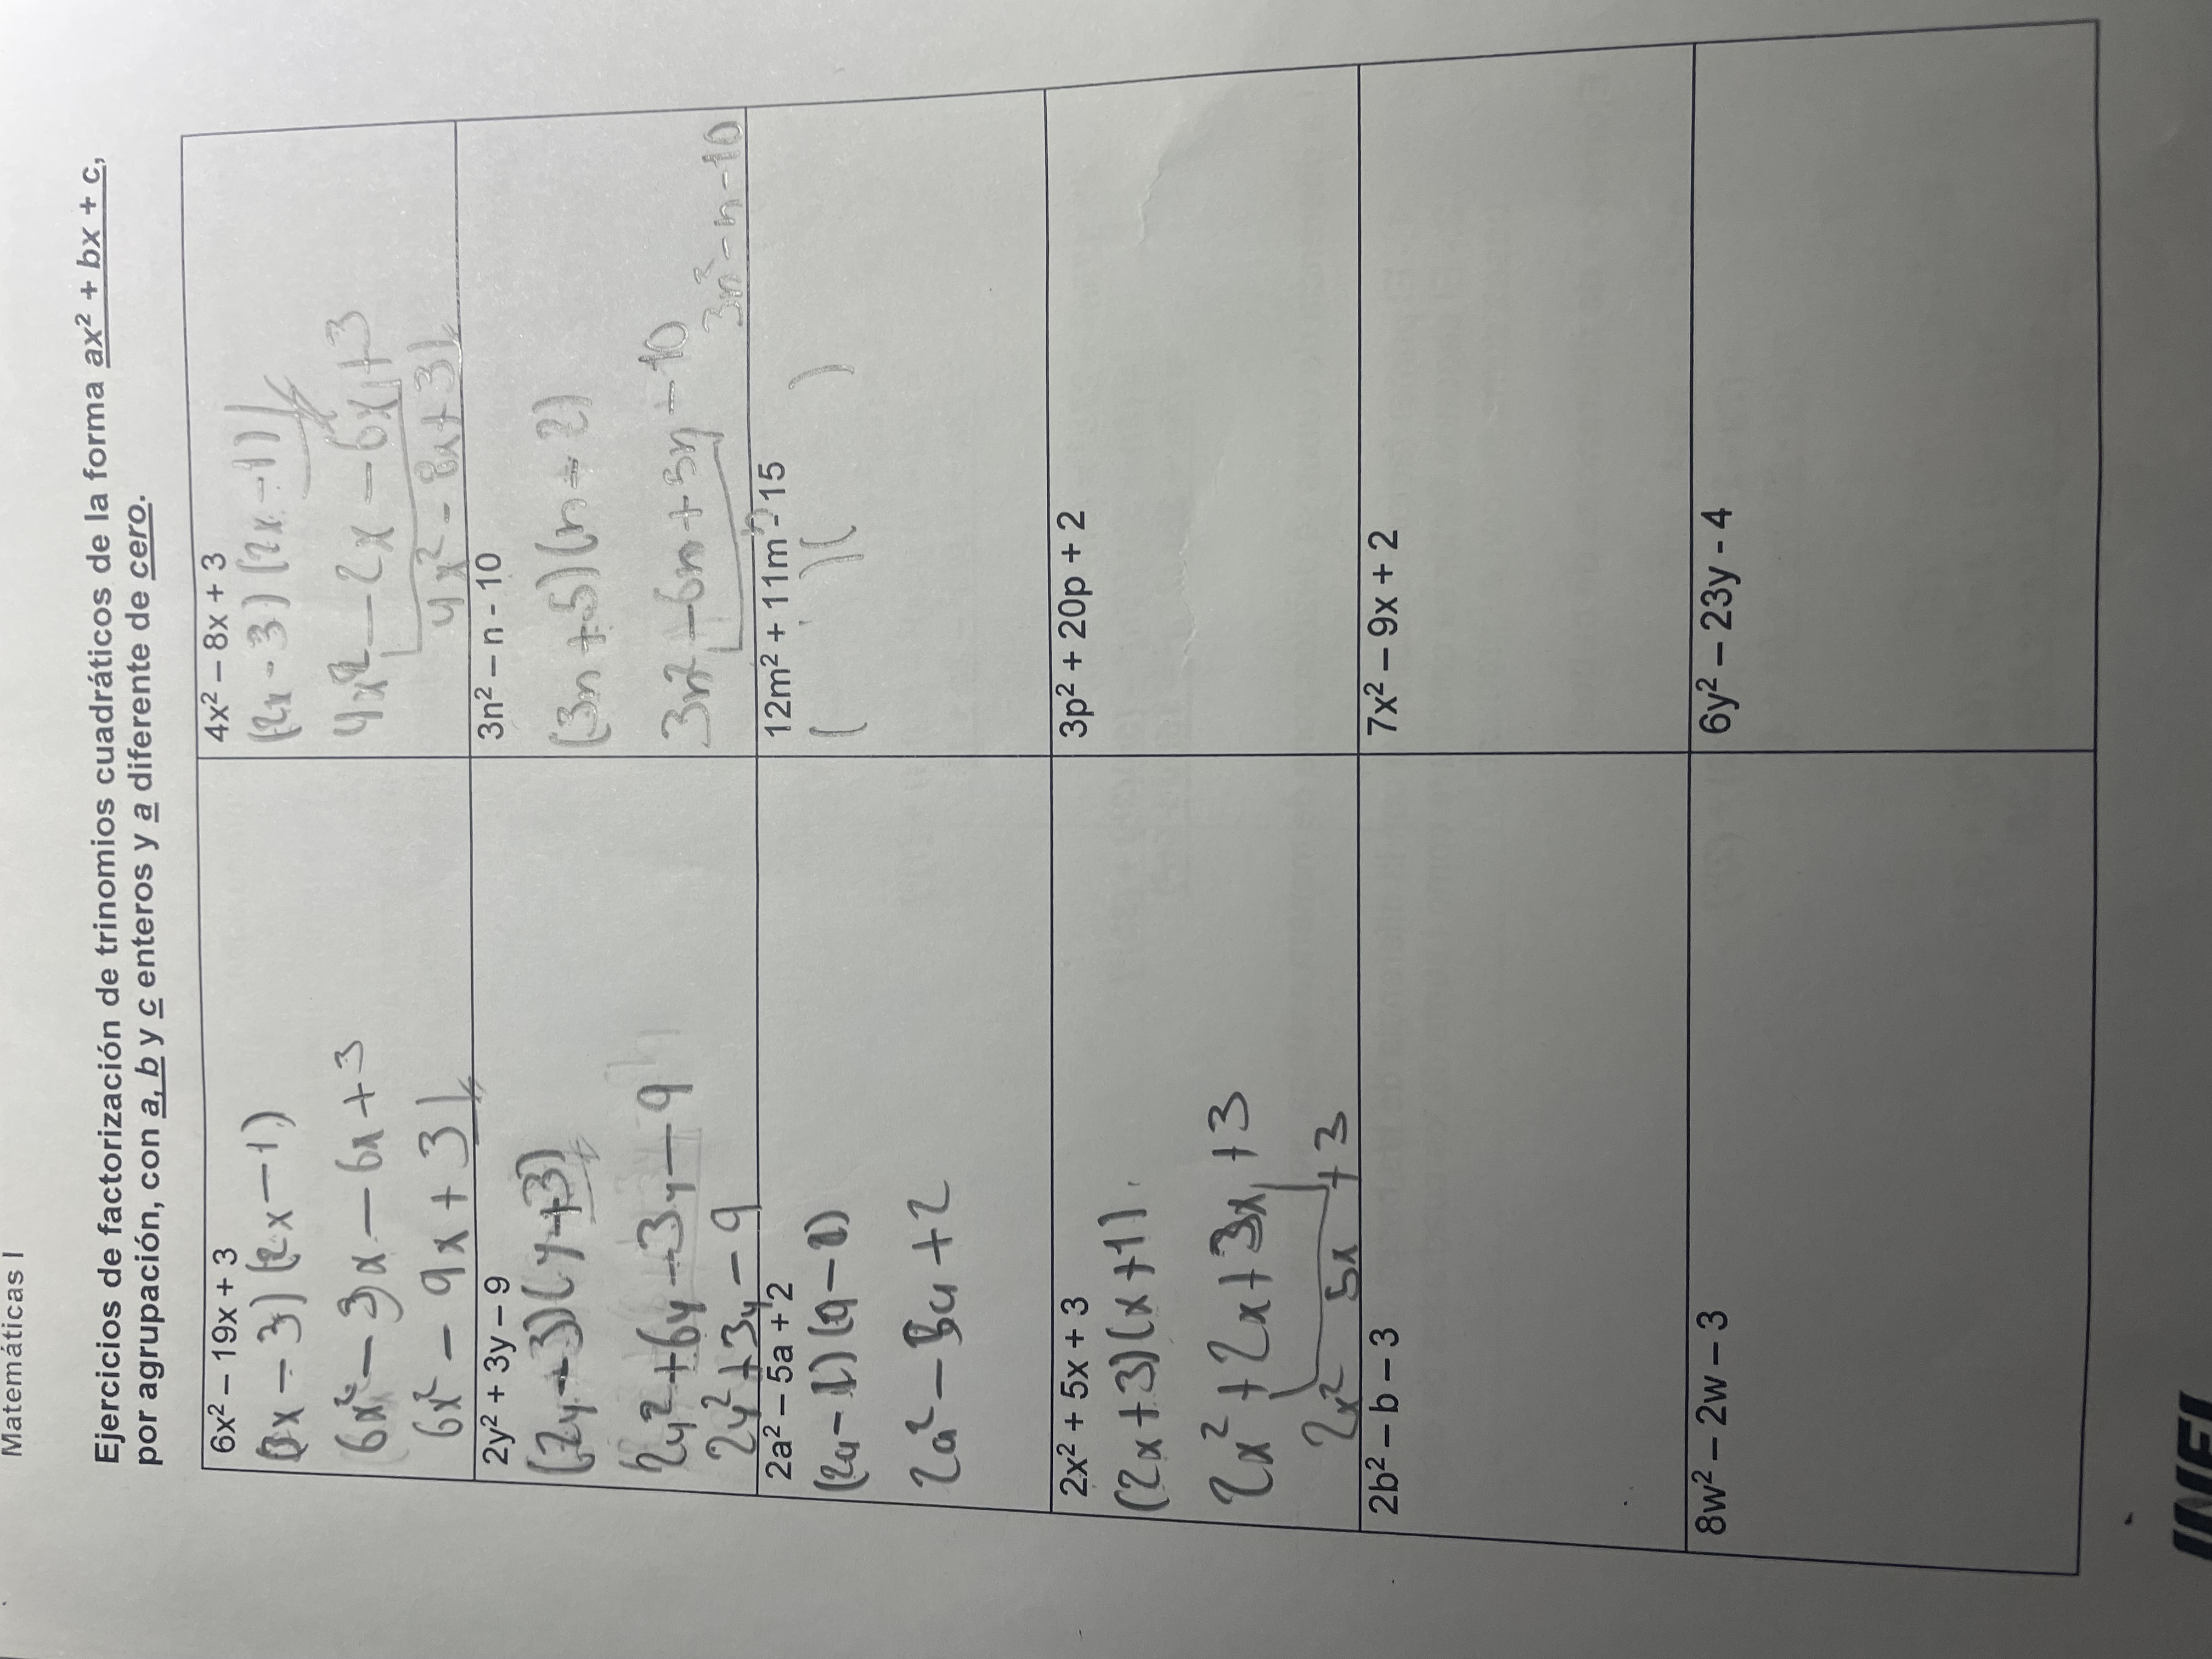 Matemáticas I
Ejercicios de factorización de trinomios cuadráticos de la forma ax² + bx + c,
por agrupación, con a, b y c enteros y a diferente de cero.
6x² – 19x + 3
(3x – 3) (2x – 1)
6x² – 3x – 6x + 3
6x² – 9x + 3
4x² – 8x + 3
(2x - 3) (2x - 1)
4x² – 2x – 6x + 3
4x² - 8x + 3
2y² + 3y – 9
(2y – 3) (y + 3)
2y² + 6y – 3y – 9
2y² + 3y – 9
3n² – n - 10
(3n + 5) (n – 2)
3n² – 6n + 5n – 10
3n² – n – 10
2a² – 5a + 2
(2a – 1) (a – 2)
2a² – 5a + 2
12m² + 11m - 15
( ) ( )
2x² + 5x + 3
(2x + 3) (x + 1)
2x² + 2x + 3x + 3
2x² 5x + 3
3p² + 20p + 2
2b² – b – 3
7x² – 9x + 2
8w² – 2w – 3
6y² – 23y - 4